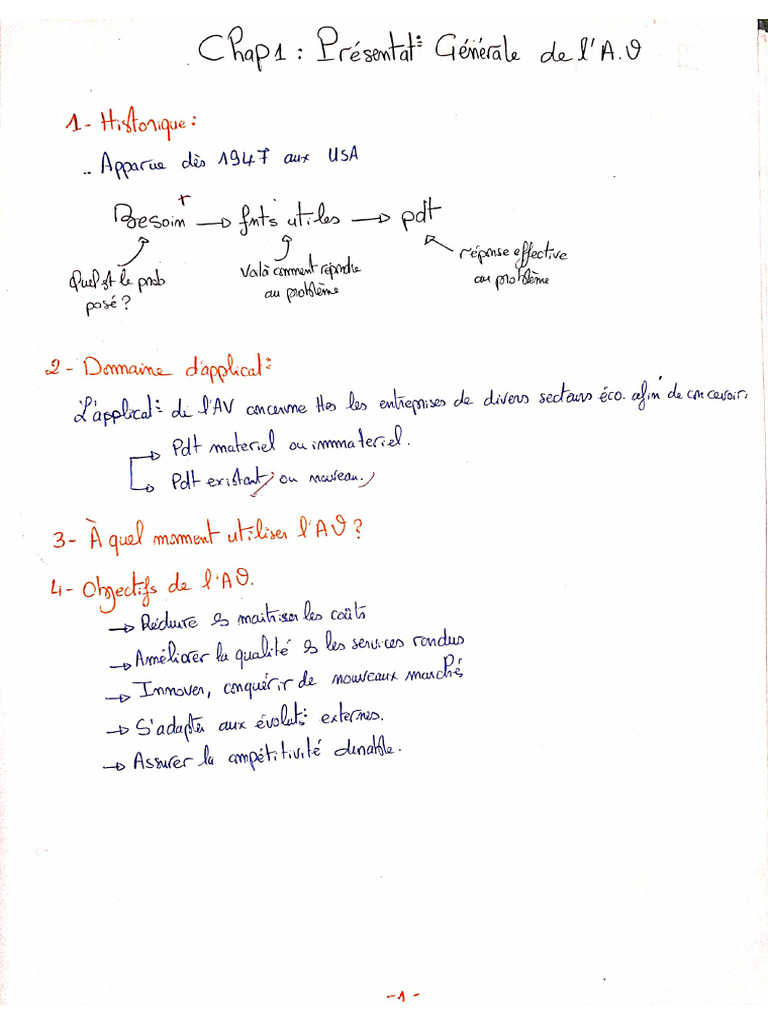 Chap1 : Présentat° Générale de l'A.V
1 - Historique :
.. Apparue dès 1947 aux USA
+
Besoin → fnts utiles → pdt
Quel est le prob posé ?
Voilà comment répondre au problème
réponse effective au problème
2 - Domaine d'applicat° :
L'applicat° de l'AV concerne ttes les entreprises de divers secteurs éco. afin de concevoir :
→ Pdt materiel ou immateriel.
→ Pdt existant, ou nouveau.
3 - À quel moment utiliser l'AV ?
4 - Objectifs de l'AV.
→ Réduire & maitriser les coûts
→ Améliorer la qualité & les services rendus
→ Innover, conquérir de nouveaux marchés
→ S'adapter aux évolut° externes.
→ Assurer la compétitivité durable.
-1-